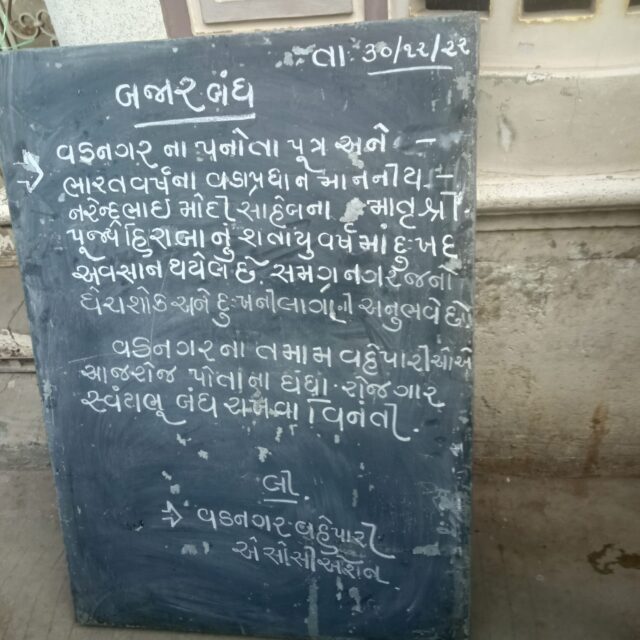 તા: ૩૦/૧૨/૨૨
બજાર બંધ
વડનગર ના પનોતા પૂત્ર અને -
ભારત વર્ષના વડાપ્રધાન માનનીય -
નરેન્દ્રભાઈ મોદી સાહેબના માતૃશ્રી.
પૂજ્ય હિરાબા નું શતાયુ વર્ષ માં દુઃખદ
અવસાન થયેલ છે. સમગ્ર નગરજનો
ઘેરાશોક અને દુઃખની લાગણી અનુભવે છે.
વડનગરના તમામ વહેપારીઓએ
આજરોજ પોતાના ધંધા-રોજગાર
સ્વંયભૂ બંધ રાખવા વિનંતી.
લી.
વડનગર વહેપારી
એસોસીએશન